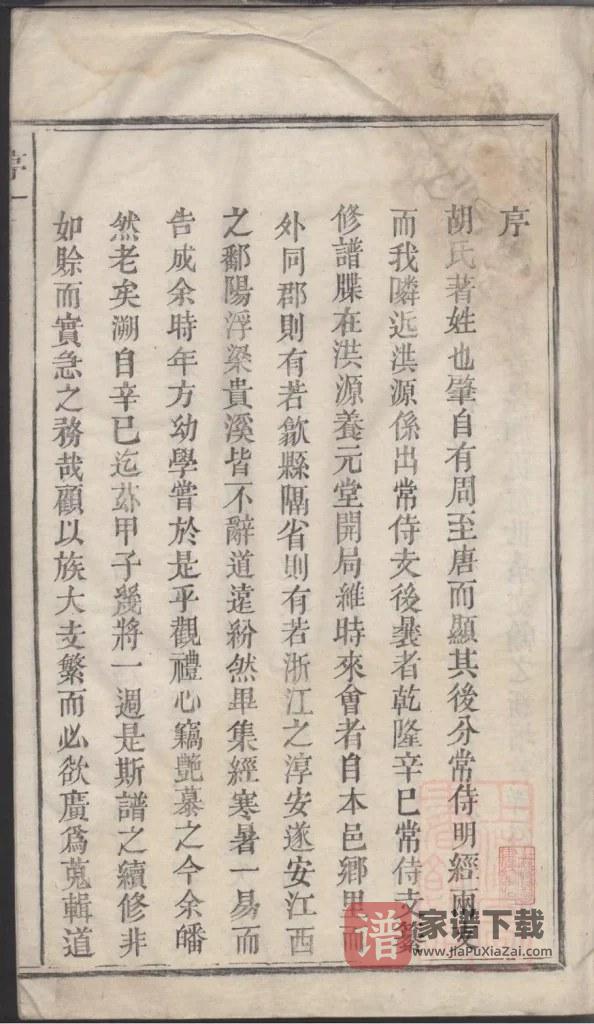 序
胡氏著姓也肇自有周至唐而顯其後分常侍明經兩支
而我隣近洪源係出常侍支後曩者乾隆辛巳常侍支纂
修譜牒在洪源養元堂開局維時來會者自本邑鄉里而
外同郡則有若歙縣隔省則有若浙江之淳安遂安江西
之鄱陽浮梁貴溪皆不辭道遠紛然畢集經寒暑一易而
告成余時年方幼學嘗於是乎觀禮心竊艷慕之今余皤
然老矣溯自辛巳迄茲甲子幾將一週是斯譜之續修非
如賒而實急之務哉顧以族大支繁而必欲廣爲蒐輯道
序
一
譜
家谱下载
www.JiaPuXiaZai.com